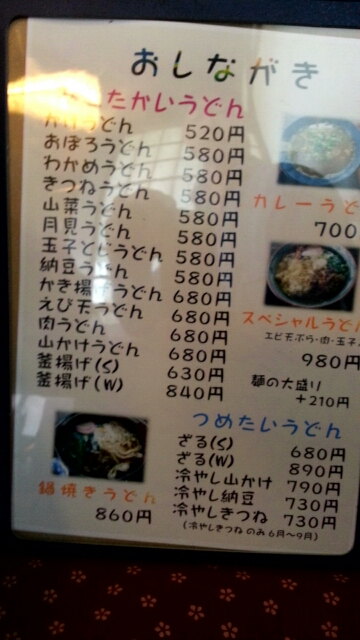 おしながき
たかいうどん
かけうどん 520円
おぼろうどん 580円
わかめうどん 580円
きつねうどん 580円
山菜うどん 580円
月見うどん 580円
玉子とじうどん 580円
納豆うどん 580円
かき揚げうどん 680円
えび天うどん 680円
肉うどん 680円
山かけうどん 680円
釜揚げ(S) 630円
釜揚げ(W) 840円
鍋焼きうどん
860円
カレーうど
700
スペシャルうどん
エビ天ぷら・肉・玉子
980円
麺の大盛り
+210円
つめたいうどん
ざる(S) 680円
ざる(W) 890円
冷やし山かけ 790円
冷やし納豆 730円
冷やしきつね 730円
(冷やしきつねのみ6月〜9月)